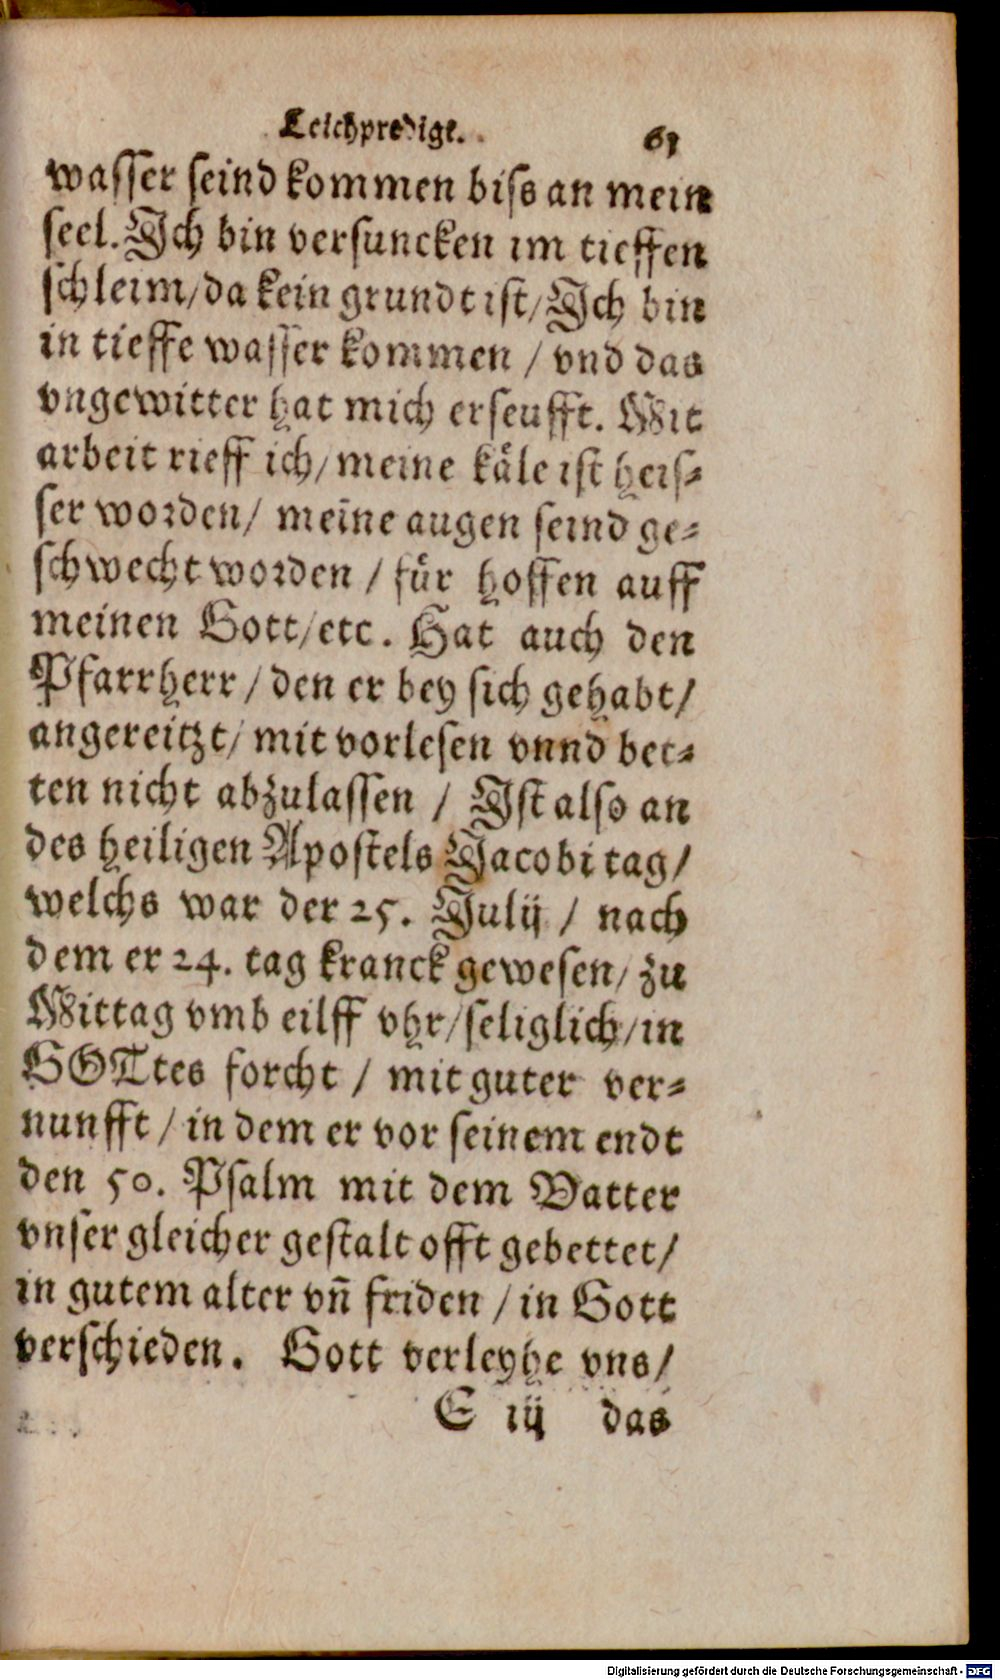 Leichpredigt. 61
wasser seind kommen biss an mein
seel. Ich bin versuncken im tieffen
schleim/da kein grundt ist/Ich bin
in tieffe wasser kommen / vnd das
vngewitter hat mich erseufft. Mit
arbeit rieff ich/meine käle ist heis-
ser worden/ meine augen seind ge-
schwecht worden / für hoffen auff
meinen Gott/etc. Hat auch den
Pfarrherr / den er bey sich gehabt/
angereitzt/ mit vorlesen vnnd bet-
ten nicht abzulassen / Ist also an
des heiligen Apostels Jacobi tag/
welchs war der 25. Julij / nach
dem er 24. tag kranck gewesen/ zu
Mittag vmb eilff vhr/seliglich/in
GOTtes forcht / mit guter ver-
nunfft / in dem er vor seinem endt
den 50. Psalm mit dem Vatter
vnser gleicher gestalt offt gebettet/
in gutem alter vn̄ friden / in Gott
verschieden. Gott verleyhe vns/
E iij das
Digitalisierung gefördert durch die Deutsche Forschungsgemeinschaft - DFG